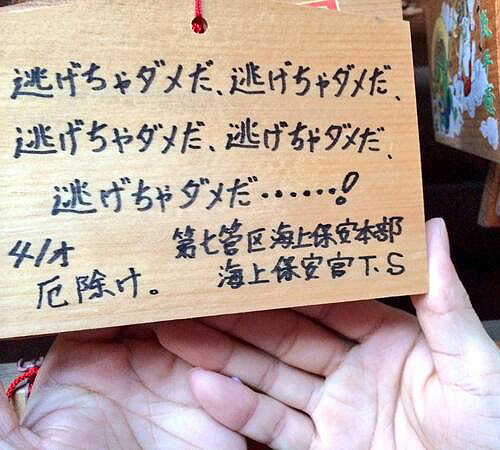 逃げちゃダメだ、逃げちゃダメだ、
逃げちゃダメだ、逃げちゃダメだ、
逃げちゃダメだ……!
41才
厄除け。
第七管区海上保安本部
海上保安官T.S